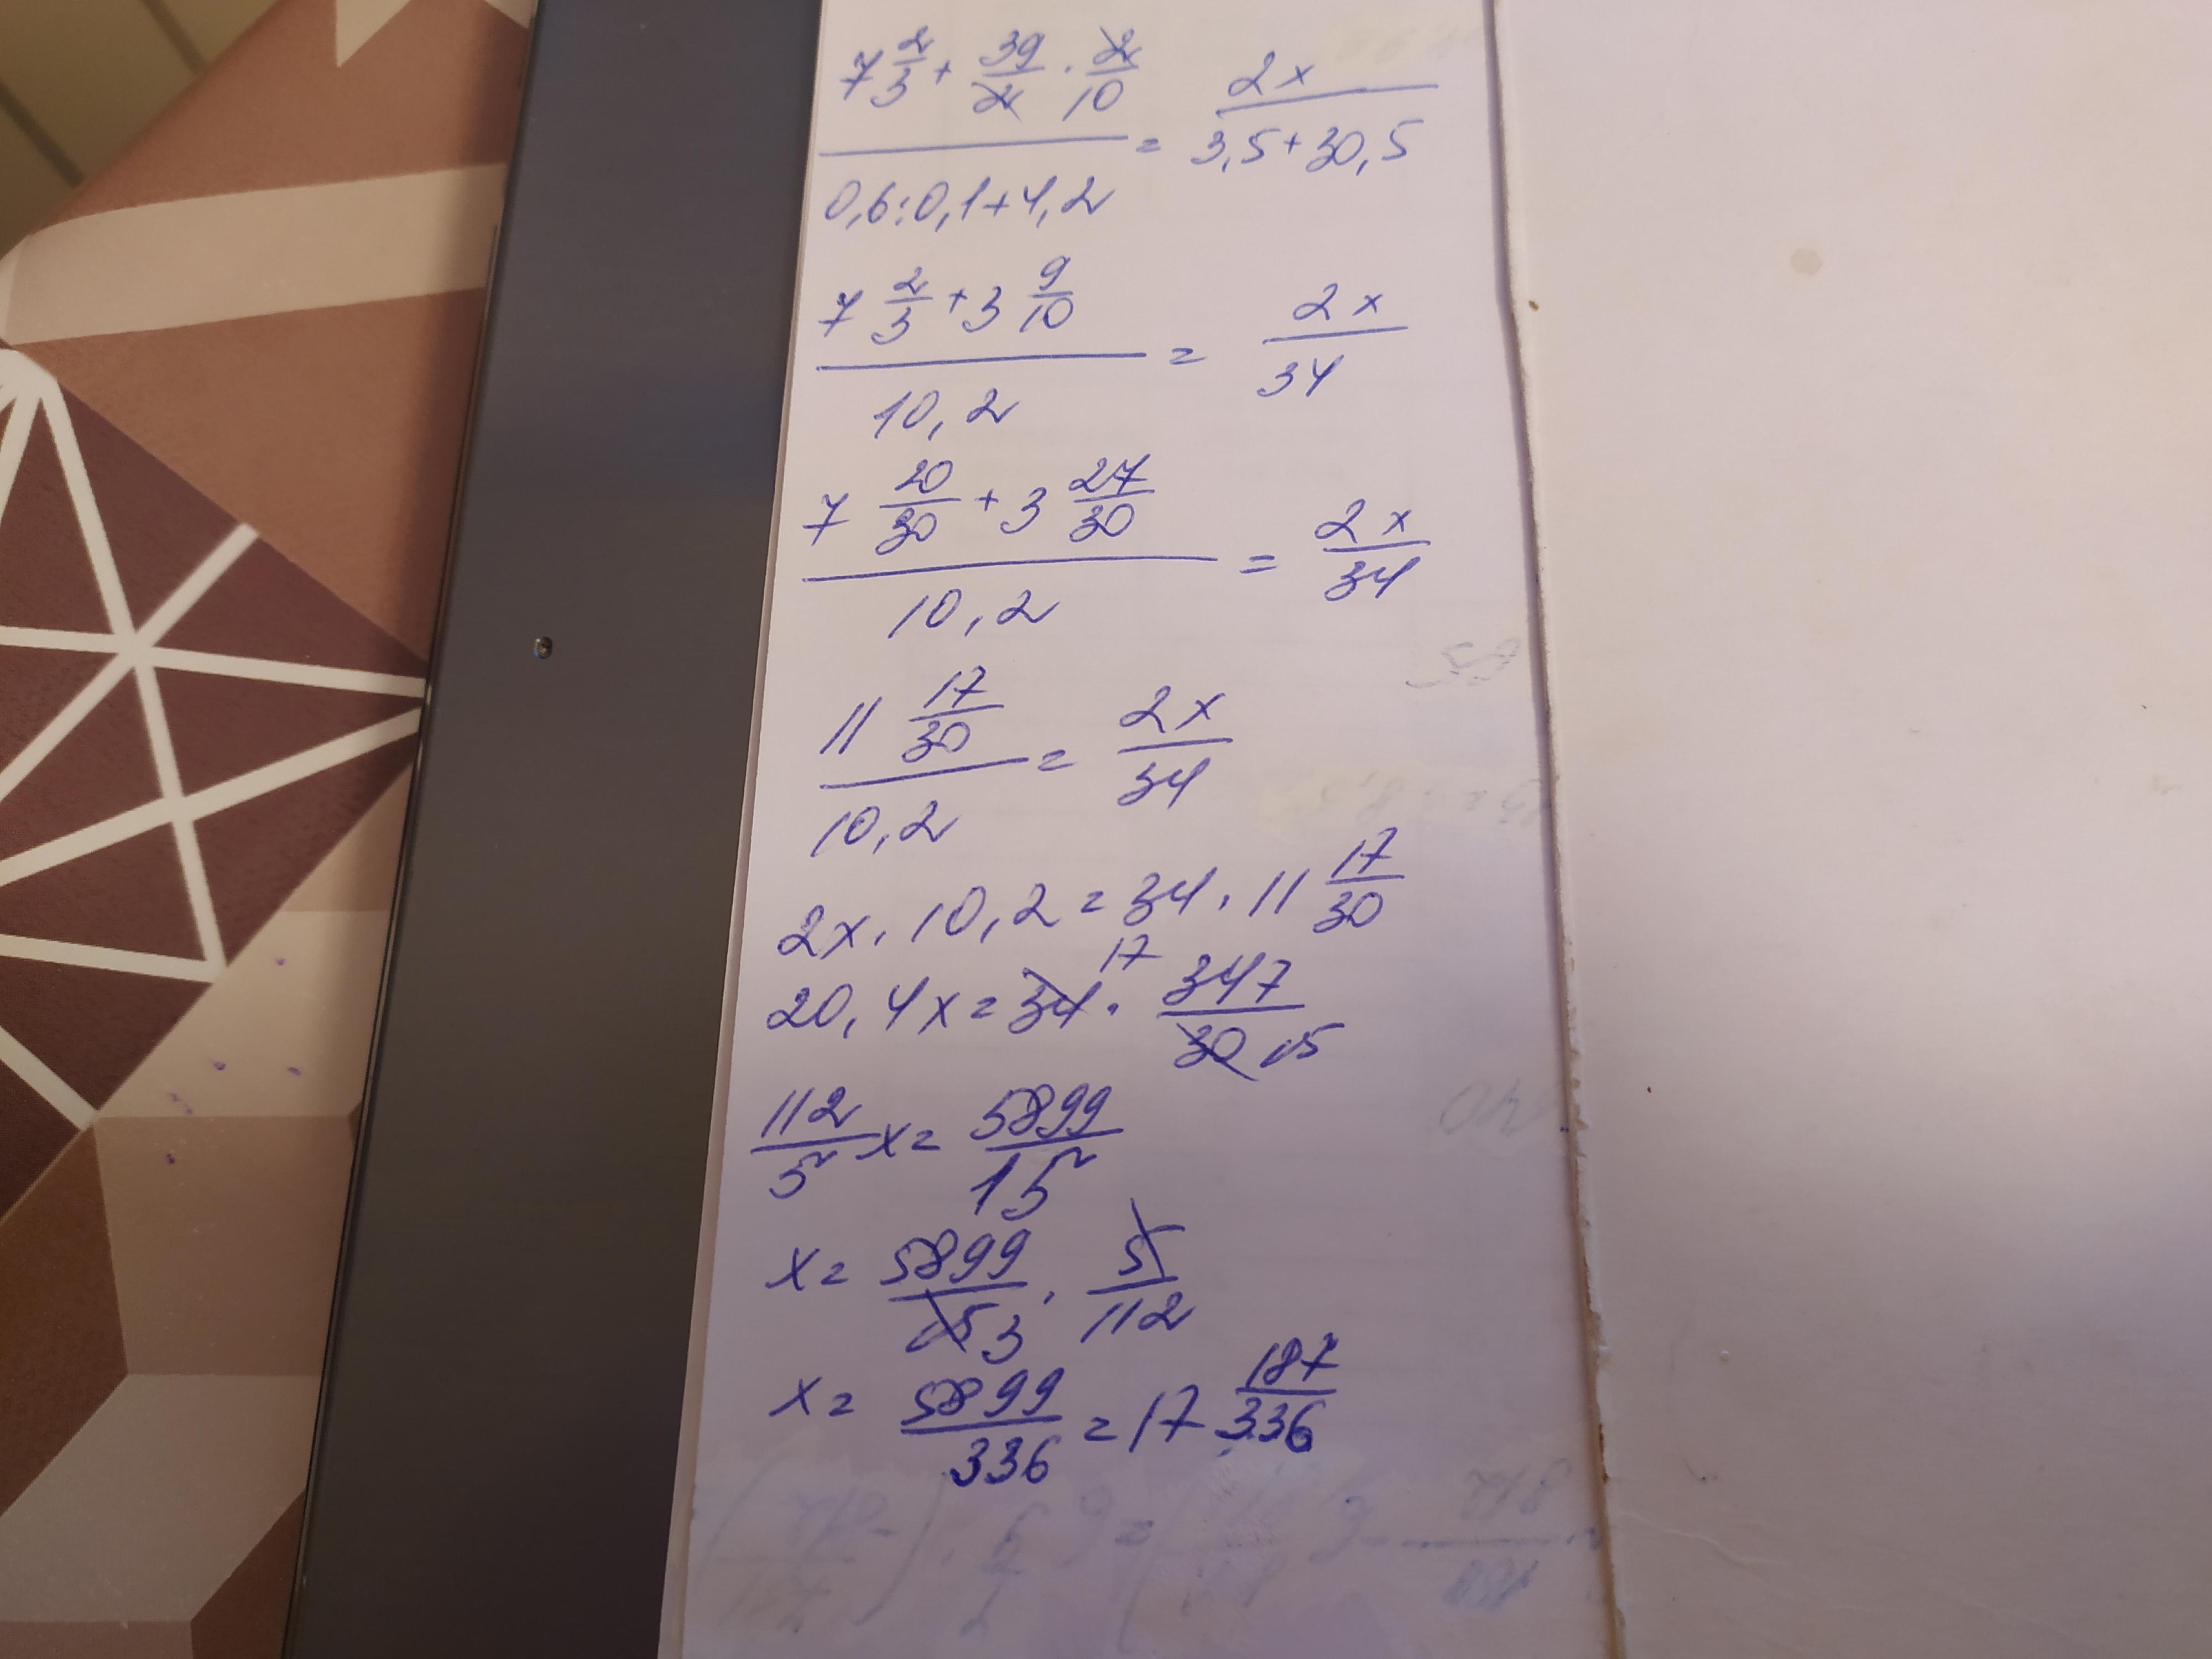 7 2/3 + 39/2 · 2/10 / 0,6:0,1+4,2 = 2x / 3,5+30,5
7 2/3 + 3 9/10 / 10,2 = 2x / 34
7 20/30 + 3 27/30 / 10,2 = 2x / 34
11 17/30 / 10,2 = 2x / 34
2x · 10,2 = 34 · 11 17/30
20,4x = 34 17 · 347 / 30 15
112/5 x = 5899/15
x = 5899 / 15 3 · 5/112
x = 5899/336 = 17 187/336